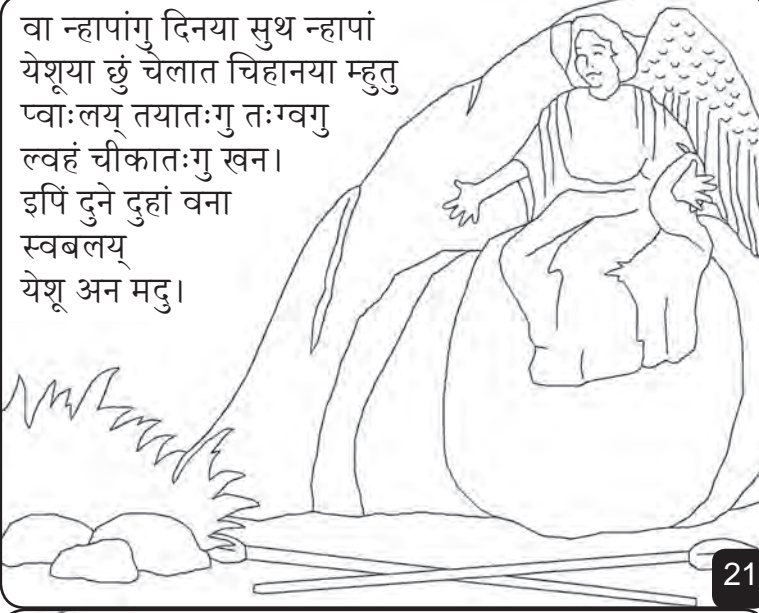 वा न्हापांगु दिनया सुथ न्हापां
येशूया छुं चेलात चिहानया म्हुतु
प्वाःलय् तयातःगु तःग्वगु
ल्वहं चीकातःगु खन।
इपिं दुने दुहां वना
स्वबलय्
येशू अन मदु।
21